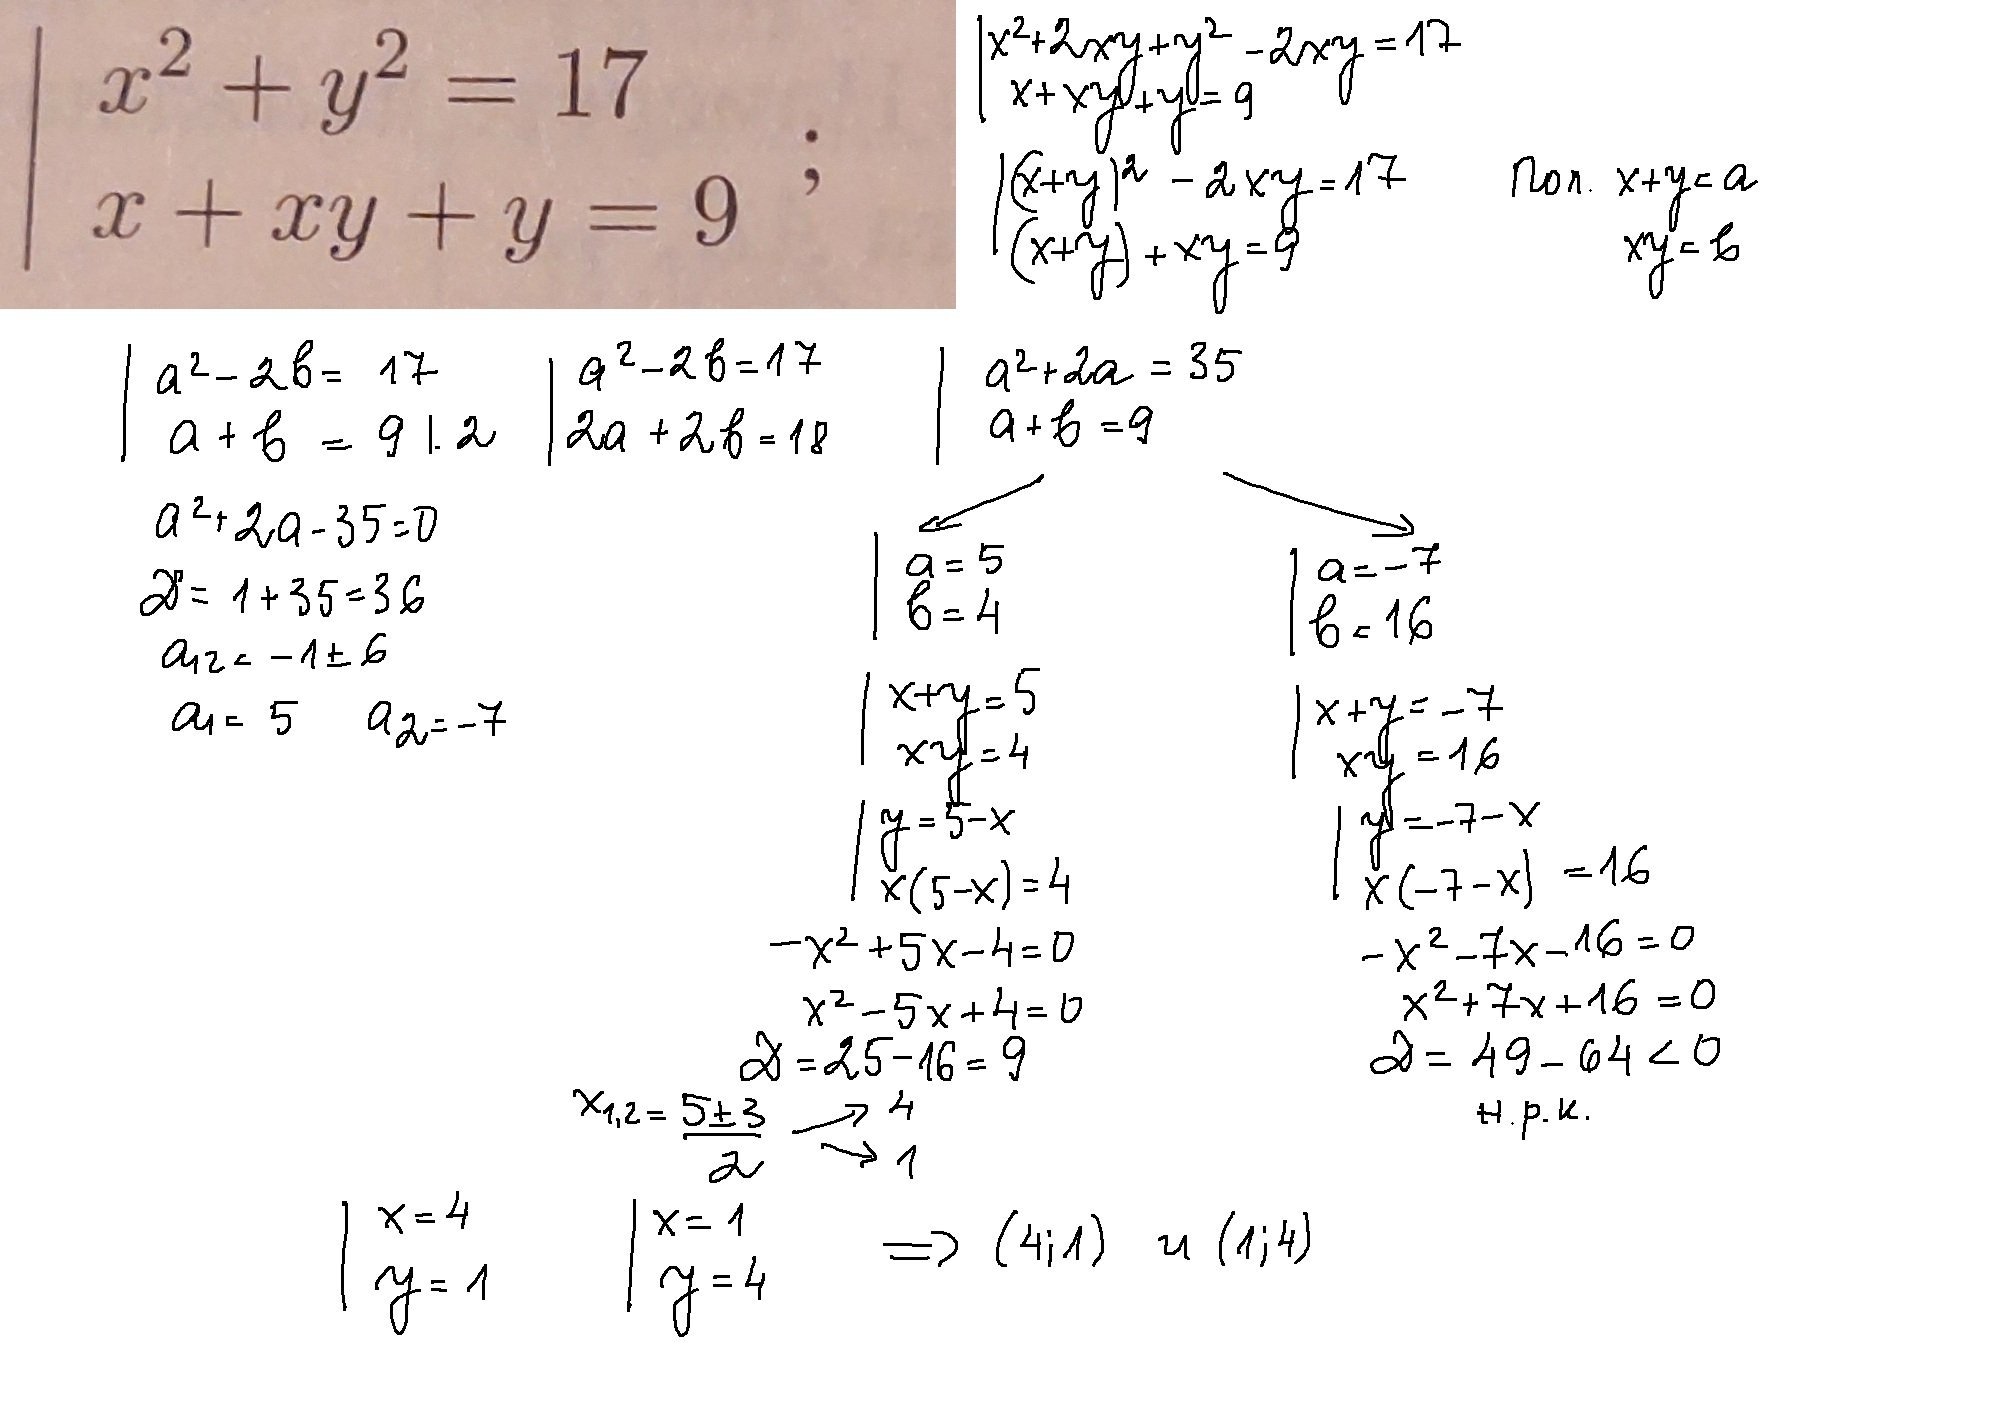 x² + y² = 17
x + xy + y = 9 ;
x²+2xy+y² -2xy=17
x+xy+y=9
(x+y)² -2xy=17
(x+y)+xy=9
Пол. x+y=a
xy=b
a²-2b= 17
a+b = 9 |.2
a²-2b=17
2a+2b=18
a²+2a=35
a+b=9
a²+2a-35=0
D= 1+35=36
a12= -1±6
a1= 5 a2=-7
a=5
b=4
x+y=5
xy=4
y=5-x
x(5-x)=4
-x²+5x-4=0
x²-5x+4=0
D=25-16=9
x1,2= 5±3
2
4
1
a=-7
b=16
x+y=-7
xy=16
y=-7-x
x(-7-x) =16
-x²-7x-16=0
x²+7x+16=0
D= 49-64<0
н.р.к.
x=4
y=1
x=1
y=4
=> (4;1) и (1;4)